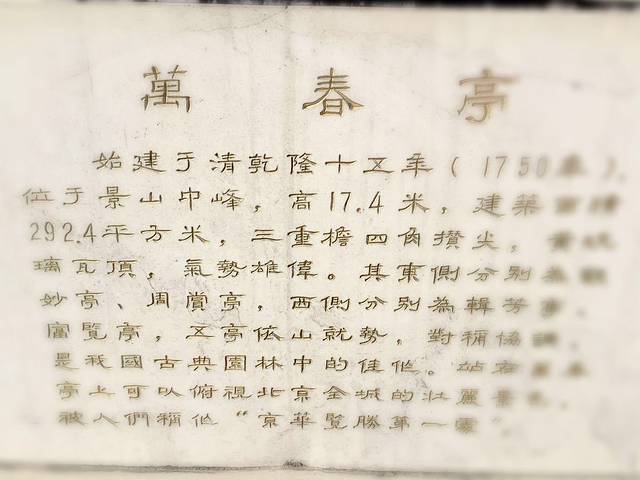 萬春亭
始建于清乾隆十五年(1750年),
位于景山中峰,高17.4米,建築面積
292.4平方米,三重檐四角攢尖,黄琉
璃瓦頂,氣勢雄偉。其東側分别為觀
妙亭、周賞亭,西側分别為輯芳亭、
富覽亭,五亭依山就勢,對稱協調,
是我國古典園林中的佳作。站在萬春
亭上可以俯視北京全城的壯麗景色,
被人們稱作“京華覽勝第一處”